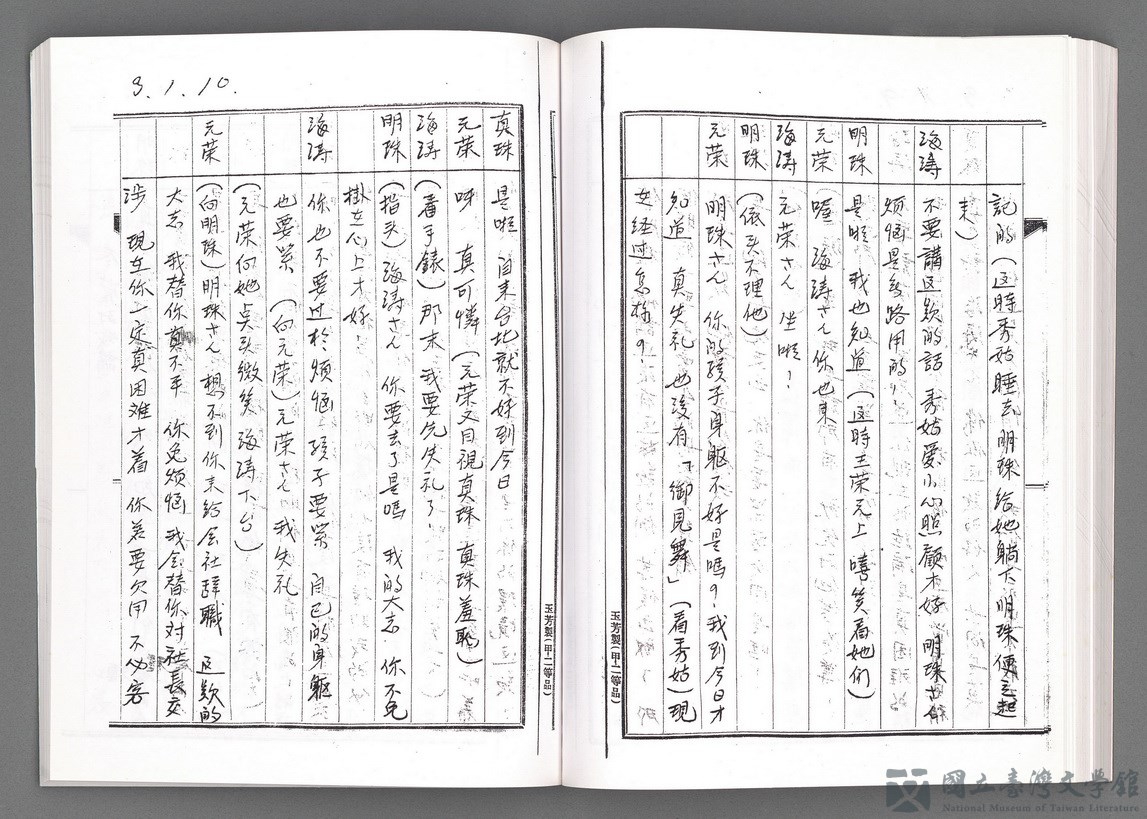 記的(这時秀姑睡去 明珠給她躺下 明珠便立起
来)
海涛 不要講这款的話 秀姑愛小心照顧才好 明珠さん
煩惱是無路用的,
明珠 是啦 我也知道 (这時王荣元上 嘻笑看她们)
元荣 喔 海涛さん 你也来
海涛 元荣さん 坐啦!
明珠 (依头不理他)
元荣 明珠さん 你的孩子身軀不好是嗎?我到今日才
知道 真失礼 也没有「御見舞」(看秀姑)現
在経过怎样?
玉芳製(甲十二等品)
3.1.10.
真珠 是啦 自来台北就不好到今日
元荣 呀 真可憐 (元荣又目視真珠 真珠羞恥)
海涛 (看手錶)那末 我要先失礼了!
明珠 (指头)海涛さん 你要去了是嗎 我的大志 你不免
掛在心上才好!
海涛 你也不要过於煩惱 孩子要緊 自己的身軀
也要緊 (向元荣)元荣さん 我失礼
(元荣向她点头微笑 海涛下台)
元荣 (向明珠)明珠さん 想不到你未給会社辞職 这款的
大志 我替你真不平 你免煩惱 我会替你对社長交
涉 現在你一定真困难才着 你若要欠用 不必客
玉芳製(甲十二等品)
國立臺灣文學館
National Museum of Taiwan Literature